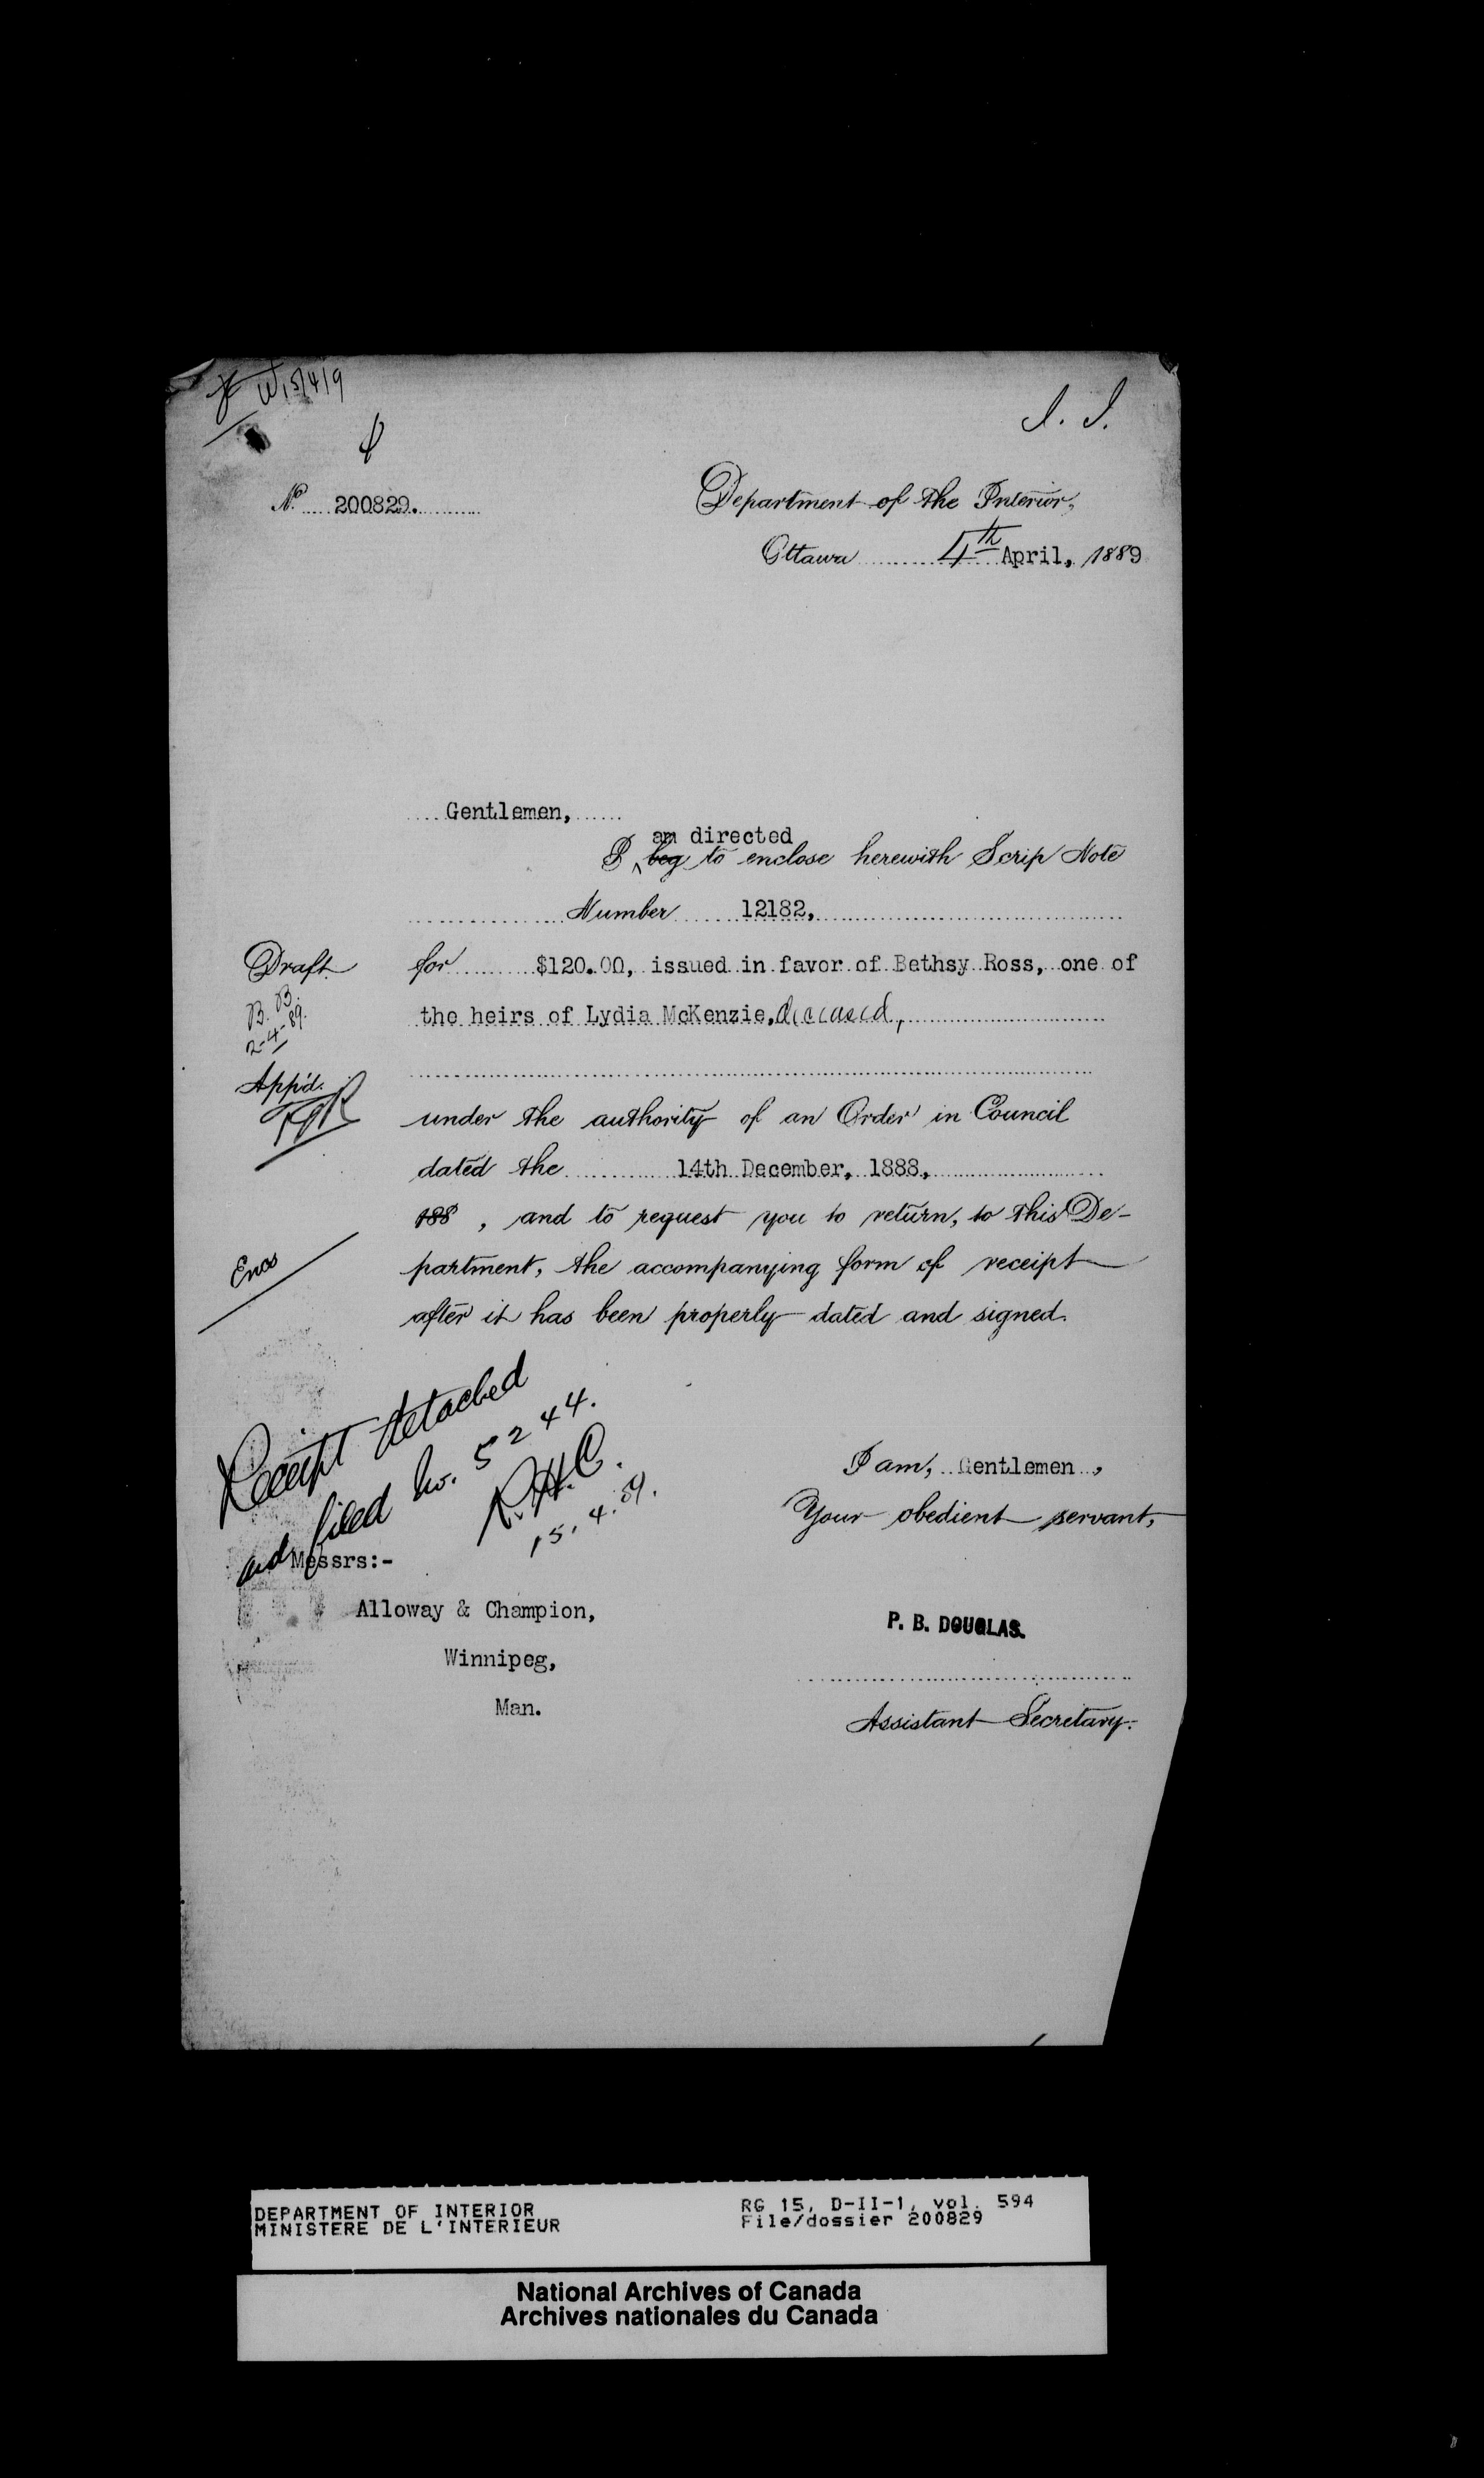 W 15/4/9
I. I.
No 200829.
Department of the Interior,
Ottawa 4th April, 1889
Gentlemen,
am directed
I beg to enclose herewith Scrip Note
Number 12182,
Draft.
for $120.00, issued in favor of Bethsy Ross, one of
B. B.
2-4-89.
the heirs of Lydia McKenzie, deceased,
App'd.
under the authority of an Order in Council
dated the 14th December, 1888,
188 , and to request you to return, to this De-
Encs
partment, the accompanying form of receipt
after it has been properly dated and signed.
Receipt detached
and filed No. 5244.
R.H.C.
15.4.89.
I am, Gentlemen,
Your obedient servant,
Messrs:-
Alloway & Champion,
Winnipeg,
Man.
P. B. DOUGLAS.
Assistant Secretary.
DEPARTMENT OF INTERIOR
MINISTERE DE L'INTERIEUR
RG 15, D-II-1, vol. 594
File/dossier 200829
National Archives of Canada
Archives nationales du Canada